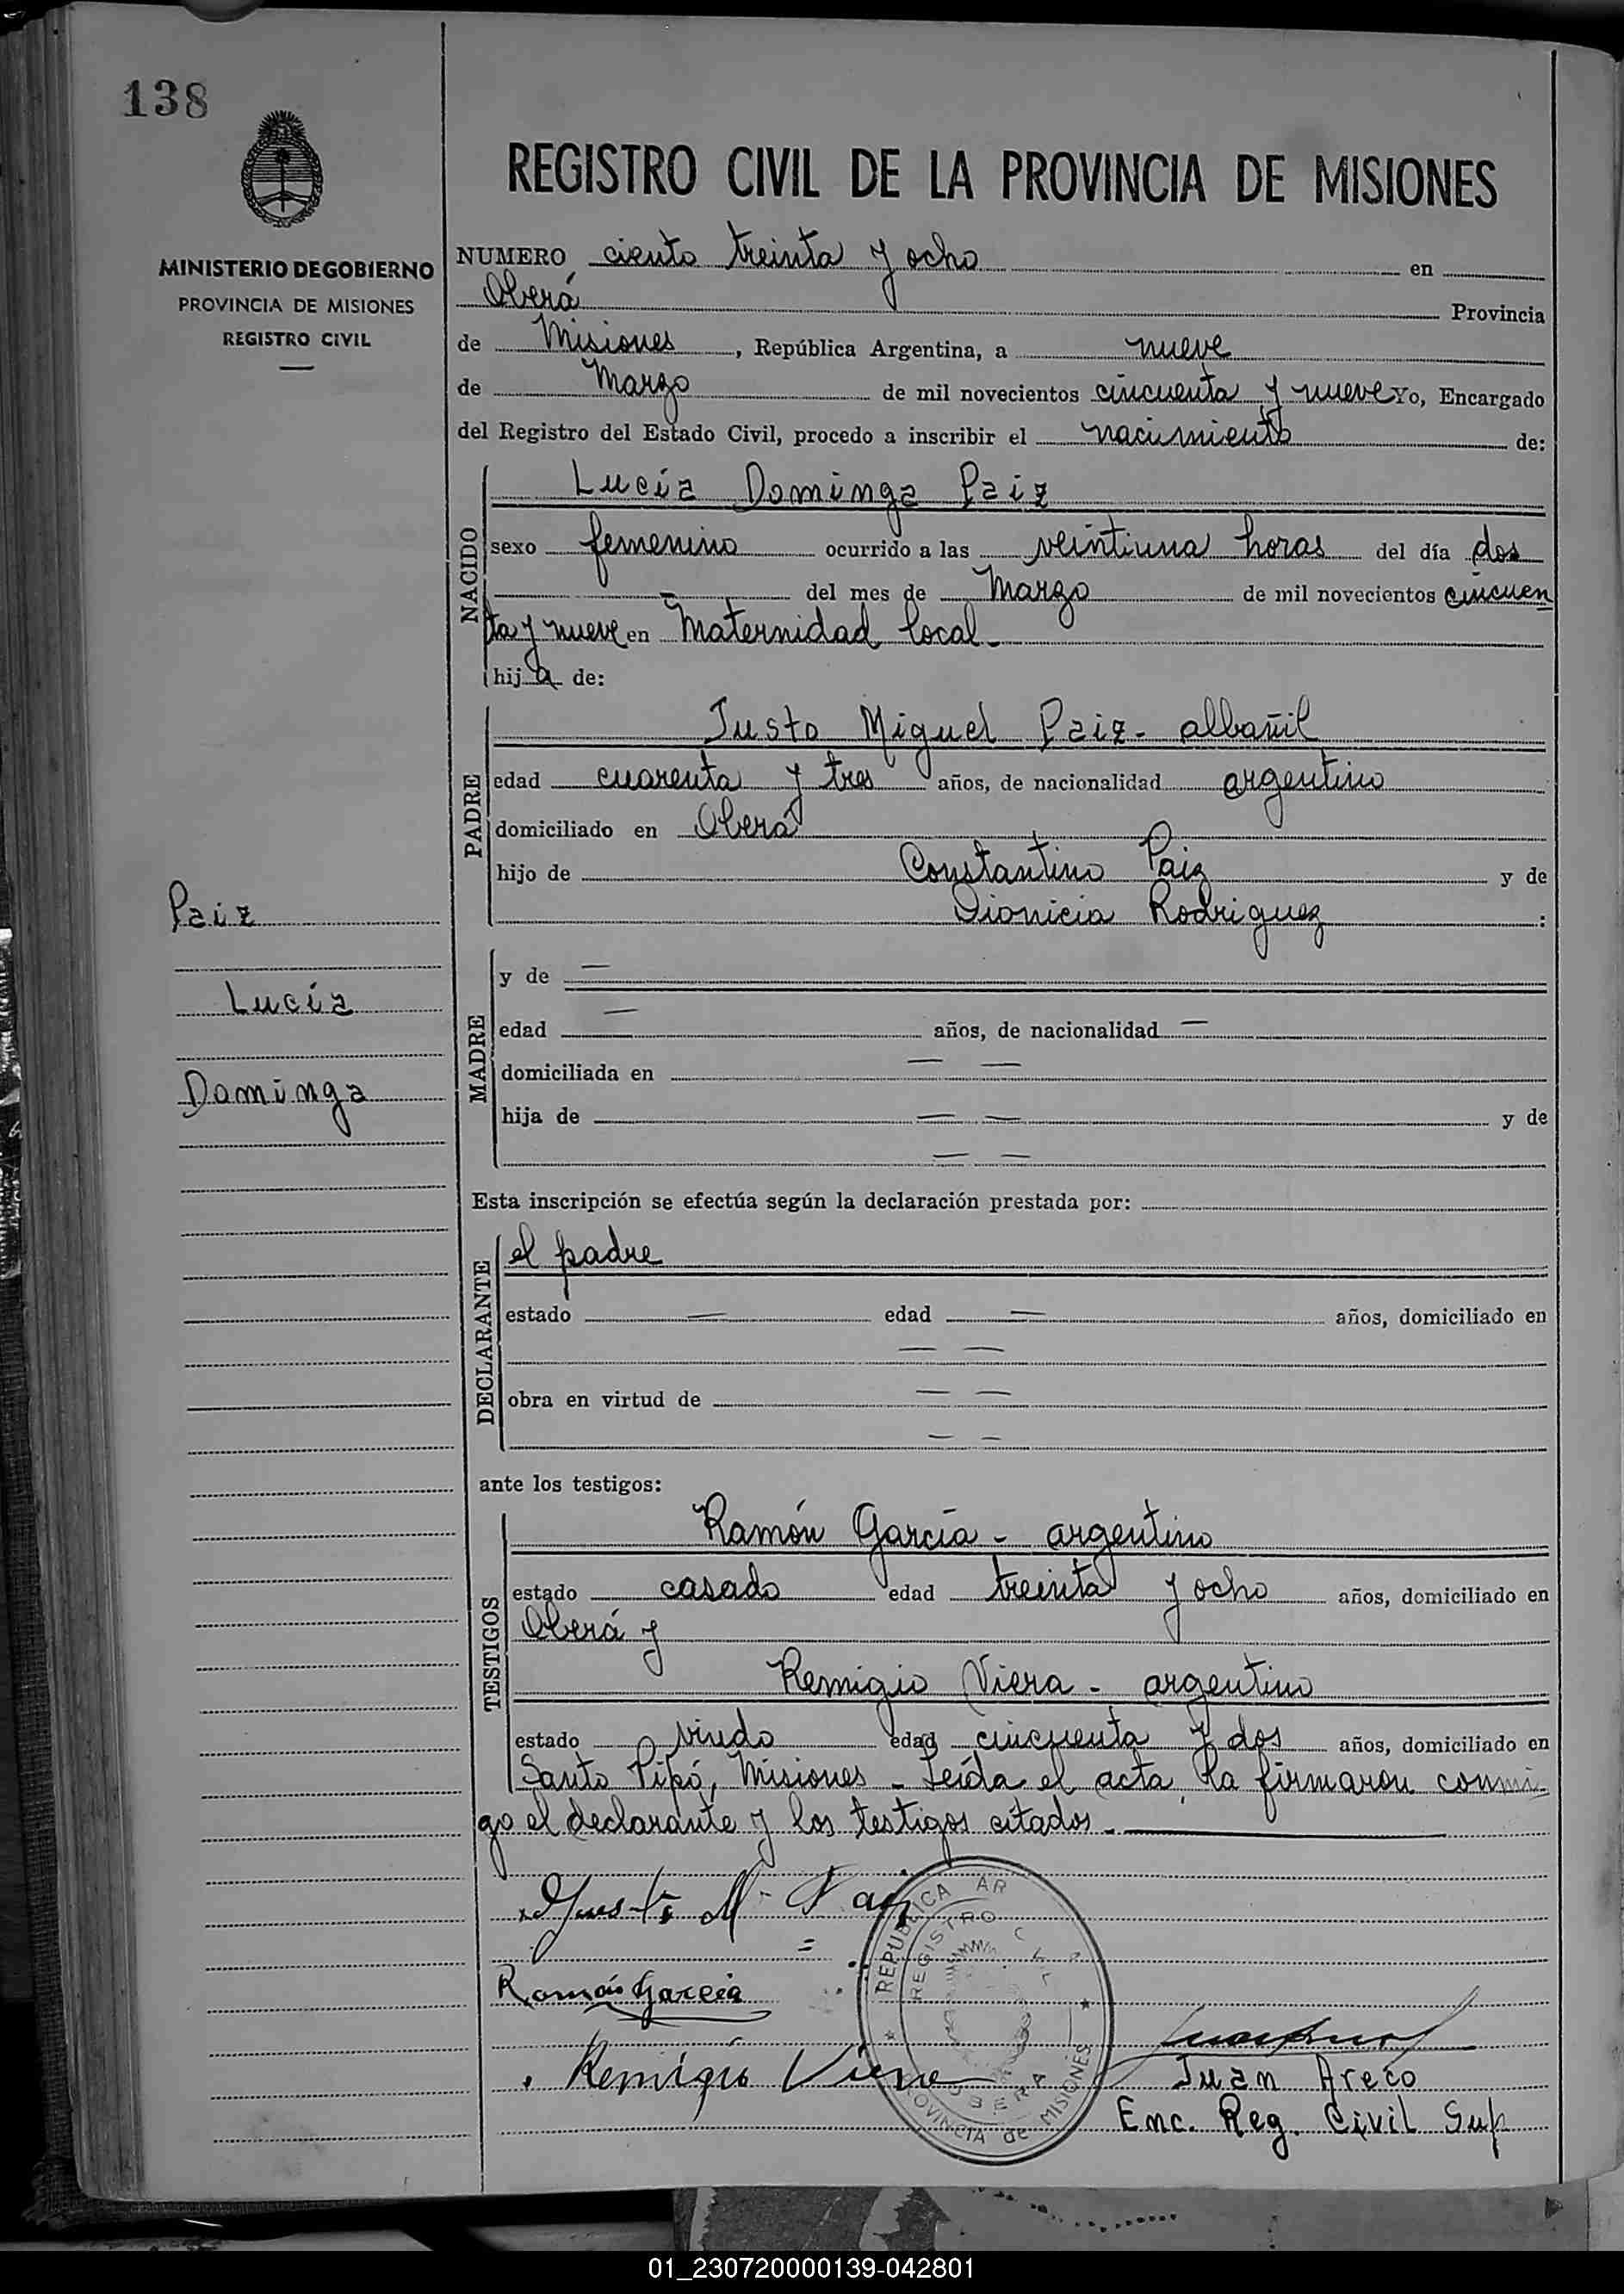 138
REGISTRO CIVIL DE LA PROVINCIA DE MISIONES
MINISTERIO DE GOBIERNO
PROVINCIA DE MISIONES
REGISTRO CIVIL
NUMERO ciento treinta y ocho en
Oberá Provincia
de Misiones, República Argentina, a nueve
de Marzo de mil novecientos cincuenta y nueve Yo, Encargado
del Registro del Estado Civil, procedo a inscribir el nacimiento de:
NACIDO
Lucía Dominga Paiz
sexo femenino ocurrido a las veintiuna horas del día dos
- del mes de Marzo de mil novecientos cincuen
ta y nueve en Maternidad local -
hija de:
PADRE
Justo Miguel Paiz - albañil
edad cuarenta y tres años, de nacionalidad argentino
domiciliado en Oberá
hijo de Constantino Paiz y de
Dionicia Rodriguez :
Paiz
Lucía
Dominga
MADRE
y de —
edad — años, de nacionalidad —
domiciliada en — —
hija de — — y de
— —
Esta inscripción se efectúa según la declaración prestada por:
DECLARANTE
el padre
estado — edad — años, domiciliado en
— —
obra en virtud de — —
— —
ante los testigos:
TESTIGOS
Ramón García - argentino
estado casado edad treinta y ocho años, domiciliado en
Oberá y
Remigio Viera - argentino
estado viudo edad cincuenta y dos años, domiciliado en
Santo Pipó, Misiones - Leída el acta, la firmaron conmi
go el declarante y los testigos citados -
Justo M. Paiz
Ramón García
Remigio Viera
REPUBLICA AR
REGISTRO CIVIL
OBERA
PROVINCIA de MISIONES
Juan Areco
Enc. Reg. Civil Sup
01_230720000139-042801